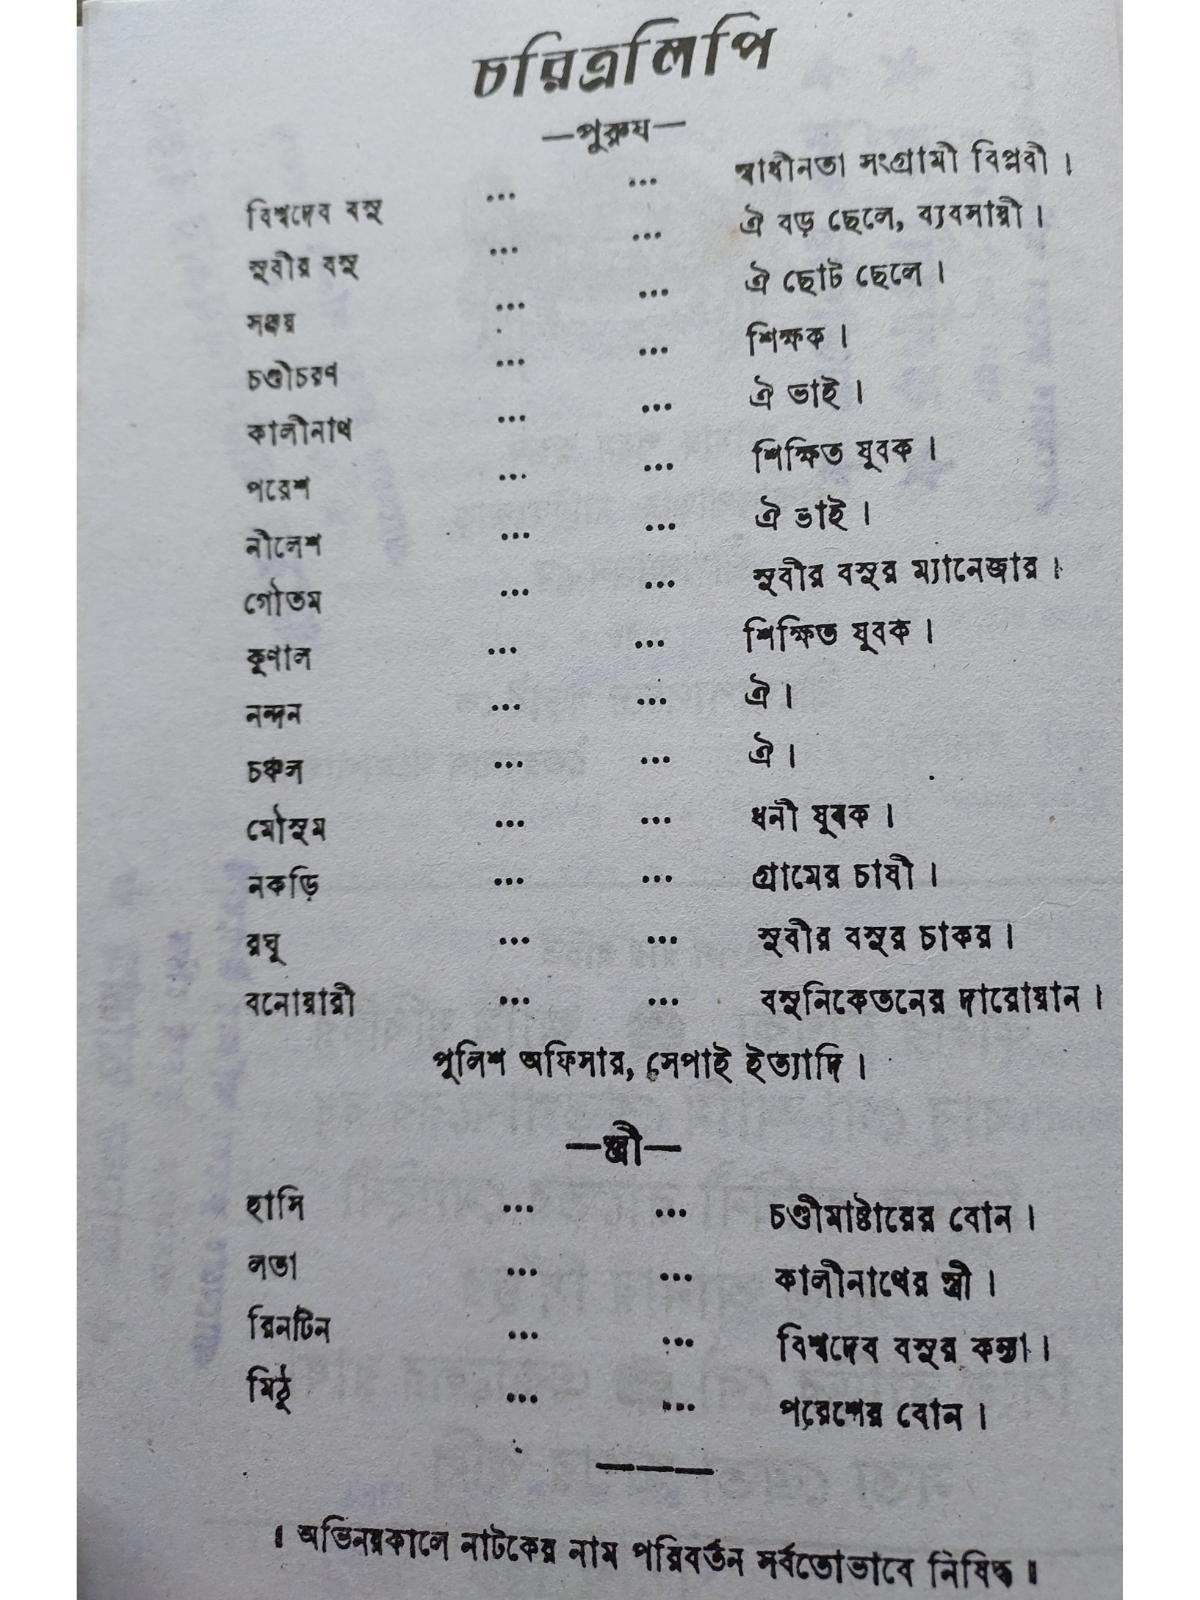 চরিত্রলিপি
—পুরুষ—
বিশ্বদেব বসু ... ... স্বাধীনতা সংগ্রামী বিপ্লবী ।
সুবীর বসু ... ... ঐ বড় ছেলে, ব্যবসায়ী ।
সঞ্জয় ... ... ঐ ছোট ছেলে ।
চণ্ডীচরণ ... ... শিক্ষক ।
কালীনাথ ... ... ঐ ভাই ।
পরেশ ... ... শিক্ষিত যুবক ।
নীলেশ ... ... ঐ ভাই ।
গৌতম ... ... সুবীর বসুর ম্যানেজার ।
কুণাল ... ... শিক্ষিত যুবক ।
নন্দন ... ... ঐ ।
চঞ্চল ... ... ঐ ।
মৌসুম ... ... ধনী যুবক ।
নকড়ি ... ... গ্রামের চাষী ।
রঘু ... ... সুবীর বসুর চাকর ।
বনোয়ারী ... ... বসুনিকেতনের দারোয়ান ।
পুলিশ অফিসার, সেপাই ইত্যাদি ।
—স্ত্রী—
হাসি ... ... চণ্ডীমাষ্টারের বোন ।
লতা ... ... কালীনাথের স্ত্রী ।
রিনটিন ... ... বিশ্বদেব বসুর কন্যা ।
মিঠু ... ... পরেশের বোন ।
। অভিনয়কালে নাটকের নাম পরিবর্তন সর্বতোভাবে নিষিদ্ধ ॥